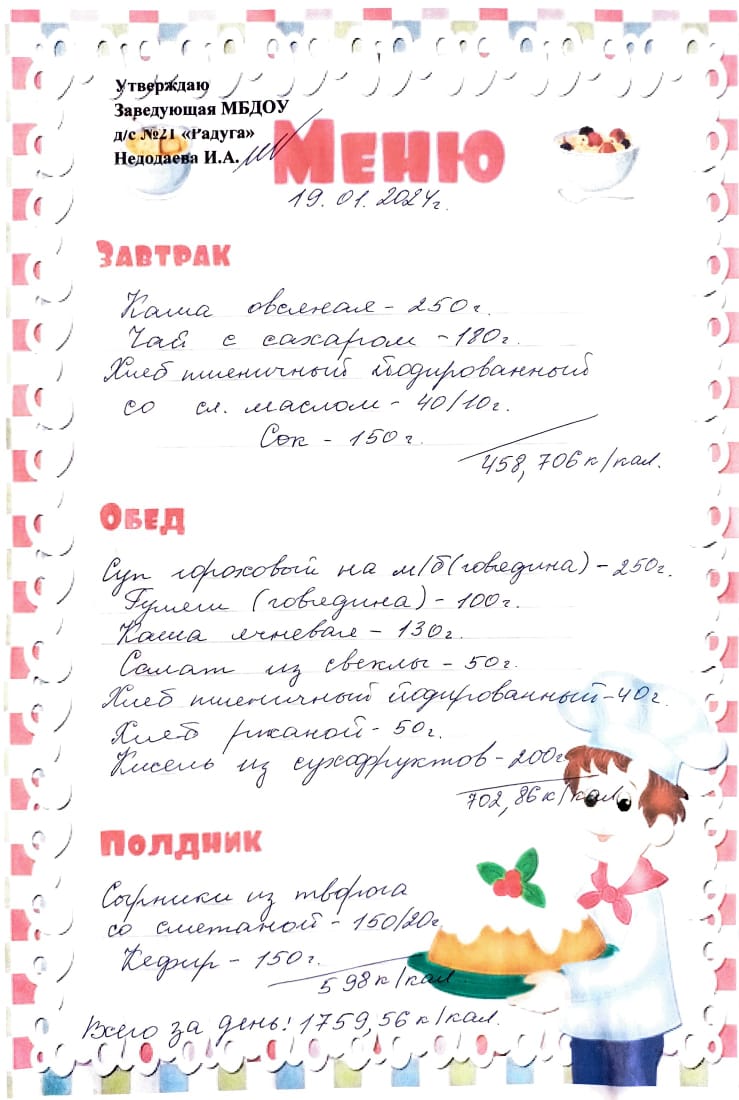 Утверждаю
Заведующая МБДОУ
д/с №21 «Радуга»
Недодаева И.А.
Меню
19.01.2024г.
Завтрак
Каша овсяная - 250г.
Чай с сахаром - 180г.
Хлеб пшеничный йодированный
со сл. маслом - 40/10г.
Сок - 150г.
458,706 к/кал.
Обед
Суп гороховый на м/б (говядина) - 250г.
Гуляш (говядина) - 100г.
Каша ячневая - 130г.
Салат из свеклы - 50г.
Хлеб пшеничный йодированный - 40г.
Хлеб ржаной - 50г.
Кисель из сухофруктов - 200г
702,86 к/кал
Полдник
Сырники из творога
со сметаной - 150/20г.
Кефир - 150г.
598 к/кал
Всего за день: 1759,56 к/кал.